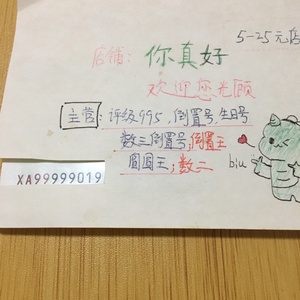 5-25元店
店铺：你真好
欢迎您光顾
主营：评级995，倒置号，生日号
数三倒置号，倒置王
圆圆王；数二
biu
XA99999019